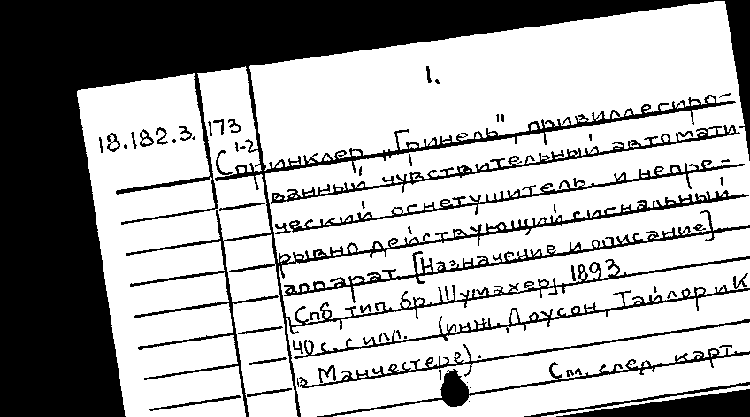 1.
18.182.3. 173
1-2
Спринклер „Гринель", привиллегиро-
ванный чувствительный автомати-
ческий огнетушитель и непре-
рывно действующий сигнальный
аппарат. [Назначение и описание].
[Спб, тип. бр. Шумахер], 1893.
40 с. с илл. (инж. Доусон, Тайлор и К
в Манчестере).
См. след. карт.